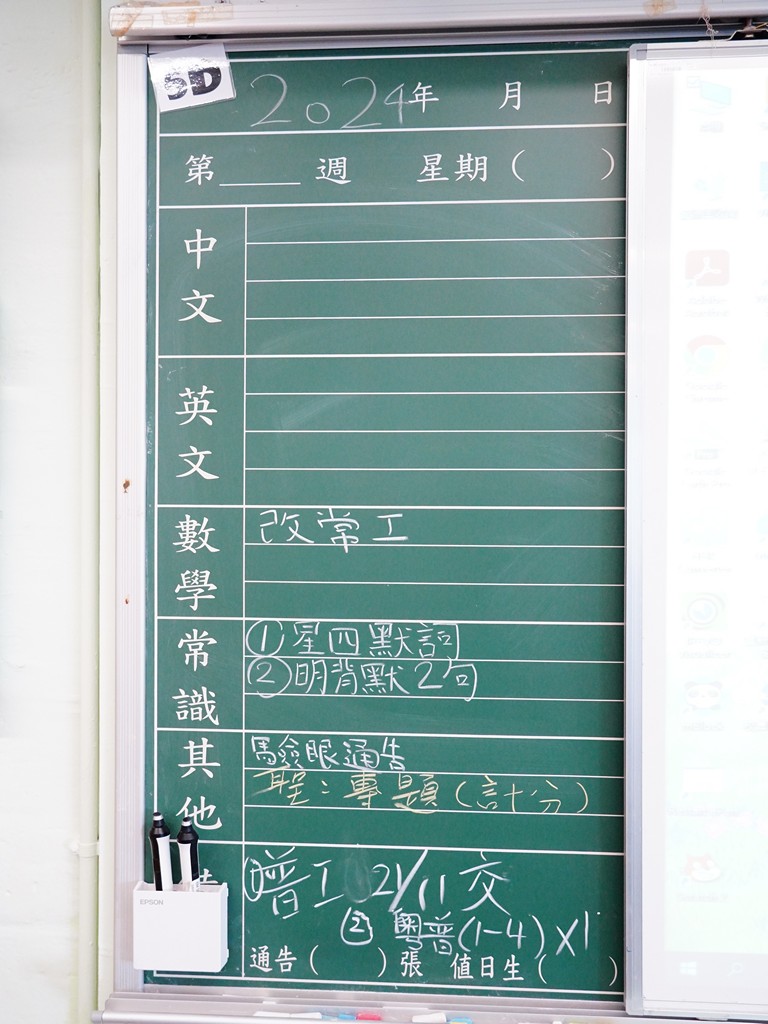 5D
2024年 月 日
第 週 星期( )
中文
英文
數學
改常工
常識
①星四默詞
②明背默2句
其他
驗眼通告
聖:專題(計分)
①普工 21/11交
②粵普(1-4)x1
EPSON
通告( )張 值日生( )